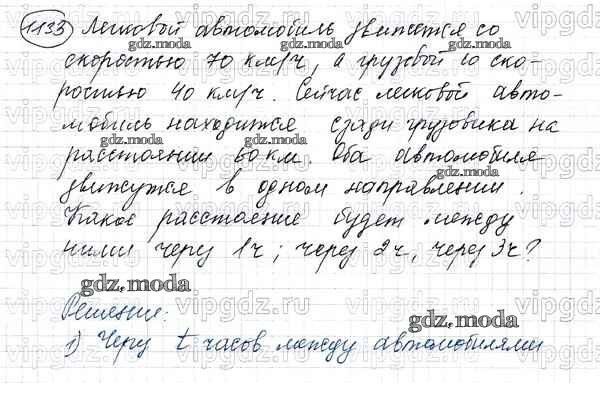 1133 Легковой автомобиль движется со
скоростью 70 км/ч, а грузовой со ско-
ростью 40 км/ч. Сейчас легковой авто-
мобиль находится сзади грузовика на
расстоянии 60 км. Оба автомобиля
движутся в одном направлении.
Какое расстояние будет между
ними через 1ч; через 2ч, через 3ч?
gdz.moda
Решение:
gdz.moda
1) Через t часов между автомобилями